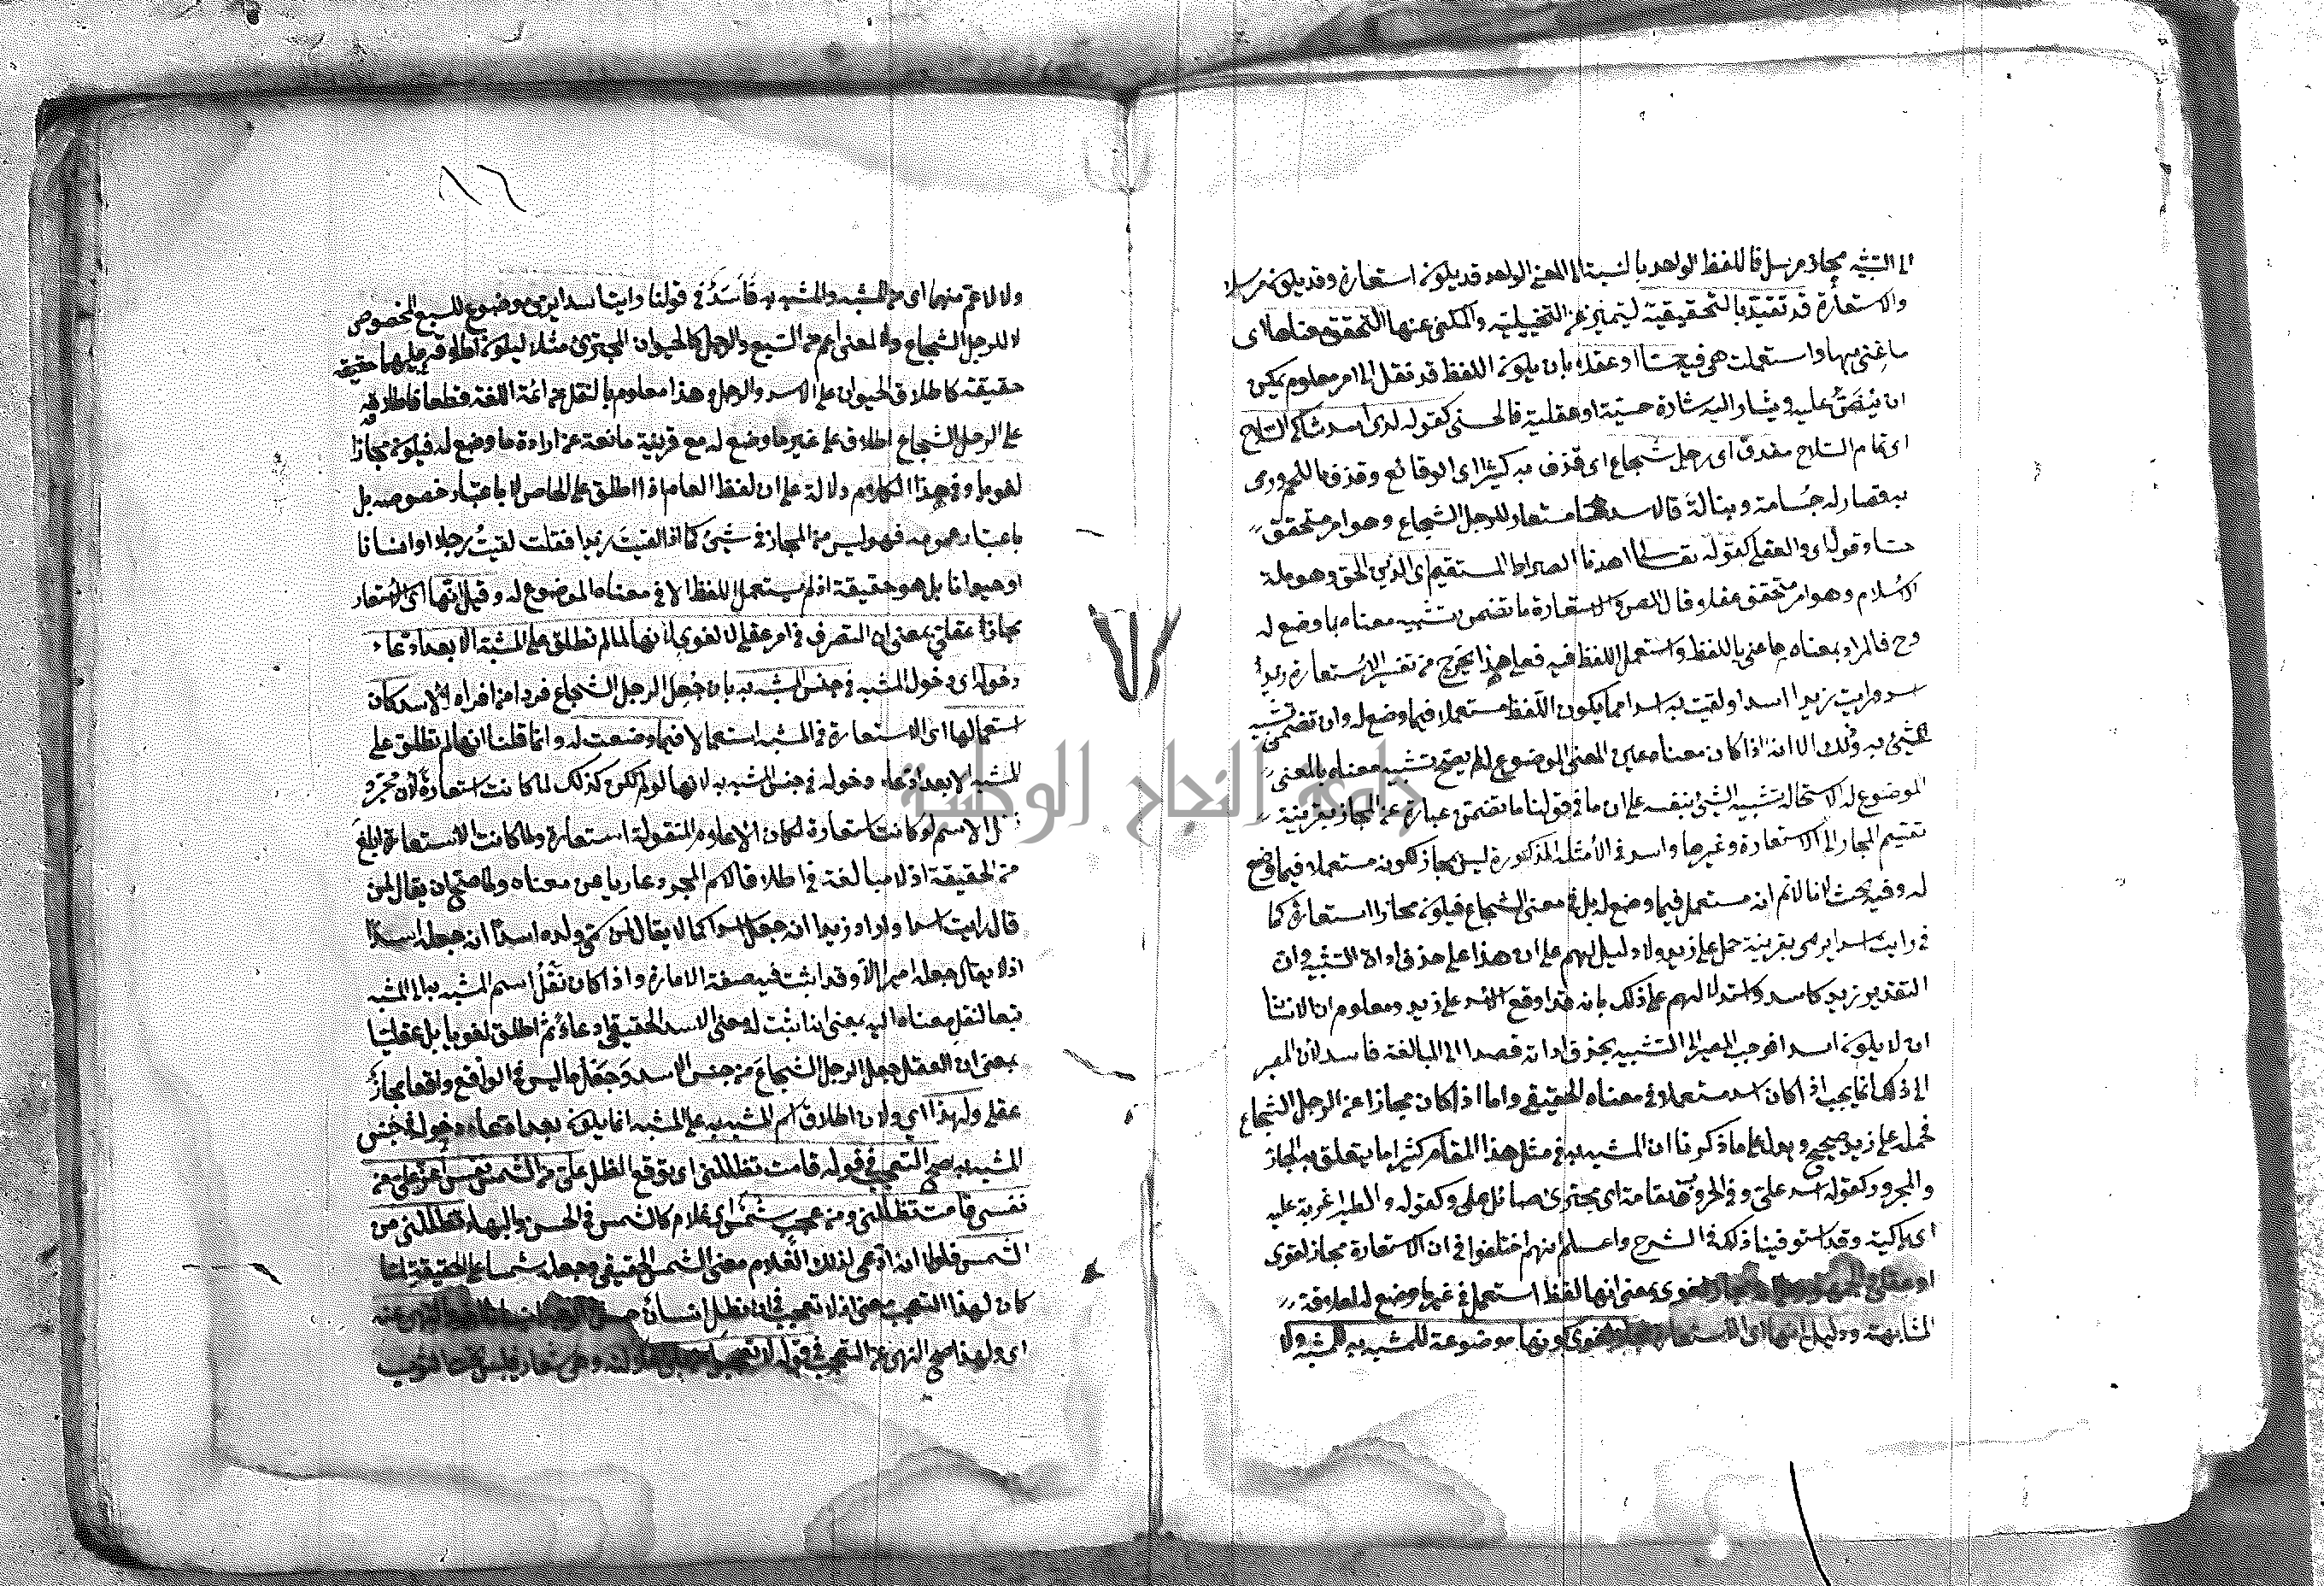 الى التشبيه مجاز مرسل فاللفظ الواحد بالنسبة الى المعنى الواحد قد يكون استعارة وقد يكون مرسلا
والاستعارة قد تقيد بالتحقيقية ليتميز عن التخييلية والمكنى عنها لتحقق معناها اى
ما عنى بها واستعملت هى فيه حسا او عقلا بان يكون اللفظ قد نقل الى امر معلوم يمكن
ان ينص عليه ويشار اليه اشارة حسية او عقلية فالحسى كقوله لدى اسد شاكى السلاح
اى تام السلاح مقذف اى رجل شجاع اى قذف به كثيرا الى الوقائع وقذف باللحم ورمى
به فصار له جسامة ونبالة فالاسد ههنا مستعار للرجل الشجاع وهو امر متحقق
حسا وقوله اى والعقلى كقوله تعالى اهدنا الصراط المستقيم اى الدين الحق وهو ملة
الاسلام وهو امر متحقق عقلا قال المص والاستعارة ما تضمن تشبيه معناه بما وضع له
وح فالمراد بمعناه ما عنى باللفظ واستعمل اللفظ فيه فعلى هذا يخرج من تفسير الاستعارة زيد
اسد ورايت زيدا اسدا ولقيت به اسدا مما يكون اللفظ مستعملا فيما وضع له وان تضمن تشبيه
شئ به وذلك الا انه اذا كان معناه عين المعنى الموضوع له لم يصح تشبيه معناه بالمعنى
الموضوع له لاستحالة تشبيه الشئ بنفسه على ان ما فى قولنا ما تضمن عبارة عن المجاز بقرينة
تقسيم المجاز الى الاستعارة وغيرها واسد فى الأمثلة المذكورة ليس بمجاز لكونه مستعملا فيما وضع
له وفيه بحث لانا لا نم انه مستعمل فيما وضع له بل فى معنى الشجاع فيكون مجازا استعارة كما
فى رايت اسدا يرمى بقرينة حمله على زيد ولا دليل لهم على ان هذا على حذف اداة التشبيه وان
التقدير زيد كاسد واستدلالهم على ذلك بانه قد اوقع الاسد على زيد ومعلوم ان الانسان
ان لا يكون اسدا فوجب المصير الى التشبيه بحذف اداته قصدا الى المبالغة فاسد لان المصير
الى ذلك انما يجب اذا كان اسد مستعملا فى معناه الحقيقى واما اذا كان مجازا عن الرجل الشجاع
فحمله على زيد صحيح ويدل على ما ذكرنا ان المشبه به فى مثل هذا المقام كثيرا ما يتعلق به الجار
والمجرور كقوله اسد على وفى الحروب نعامة اى مجترئ صائل على وكقوله والطير اغربة عليه
اى باكية وقد استوفينا ذلك فى الشرح واعلم انهم اختلفوا فى ان الاستعارة مجاز لغوى
او عقلى لغوى بمعنى انها لفظ استعمل فى غير ما وضع له لعلاقة
المشابهة ودليل انها اى الاستعارة لغوى كونها موضوعة للمشبه به لا للمشبه ولا
١٦
ولا للاعم منهما اى من المشبه والمشبه به فأسد فى قولنا رايت اسدا يرمى موضوع للسبع المخصوص
لا للرجل الشجاع ولا لمعنى اعم من السبع والرجل كالحيوان المجترئ مثلا ليكون اطلاقه عليهما حقيقة
حقيقة كاطلاق الحيوان على الاسد والرجل وهذا معلوم بالنقل عن ائمة اللغة قطعا فاطلاقه
على الرجل الشجاع اطلاق على غير ما وضع له مع قرينة مانعة عن ارادة ما وضع له فيكون مجازا
لغويا وفى هذا الكلام دلالة على ان لفظ العام اذا اطلق على الخاص لا باعتبار خصوصه بل
باعتبار عمومه فهو ليس من المجاز فى شئ كما اذا لقيت زيدا فقلت لقيت رجلا او انسانا
او حيوانا بل هو حقيقة اذ لم يستعمل اللفظ الا فى معناه الموضوع له وقيل انها اى الاستعارة
مجاز عقلى بمعنى ان التصرف فى امر عقلى لا لغوى لانها لما لم تطلق على المشبه الا بعد ادعاء
دخوله اى دخول المشبه فى جنس المشبه به بان جعل الرجل الشجاع فردا من افراد الاسد كان
استعمالها اى الاستعارة فى المشبه استعمالا فيما وضعت له وانما قلنا انها لم تطلق على
المشبه الا بعد ادعاء دخوله فى جنس المشبه به لانها لو لم تكن كذلك لما كانت استعارة لأن مجرد
نقل الاسم لو كانت استعارة لكان الاعلام المنقولة استعارة ولما كانت الاستعارة ابلغ
من الحقيقة اذ لا مبالغة فى اطلاق الاسم المجرد عاريا من معناه ولما صح ان يقال لمن
قال رايت اسدا واراد زيدا انه جعله اسدا كما لا يقال لمن سمى ولده اسدا انه جعله اسدا
اذ لا يقال جعله اميرا الا وقد اثبت فيه صفة الامارة واذا كان نقل اسم المشبه به الى المشبه
تبعا لنقل معناه اليه بمعنى انه اثبت له معنى الاسد الحقيقى ادعاء ثم اطلق لغويا بل عقليا
بمعنى ان العقل جعل الرجل الشجاع من جنس الاسد وجعل ما ليس فى الواقع واقعا مجاز
عقلى ولهذا اى ولان اطلاق اسم المشبه به على المشبه انما يكون بعد ادعاء دخوله فى جنس
المشبه به صح التعجب فى قوله قامت تظللنى اى توقع الظل على من الشمس نفس اعز على من
نفسى قامت تظللنى ومن عجب شمس اى غلام كالشمس فى الحسن والبهاء تظللنى من
الشمس فلولا انه ادعى لذلك الغلام معنى الشمس الحقيقى وجعله شمسا على الحقيقة لما
كان لهذا التعجب معنى اذ لا تعجب فى ان يظلل انسان
اى ولهذا صح النهى عن التعجب فى قوله لا تعجبوا
جامعة النجاح الوطنية